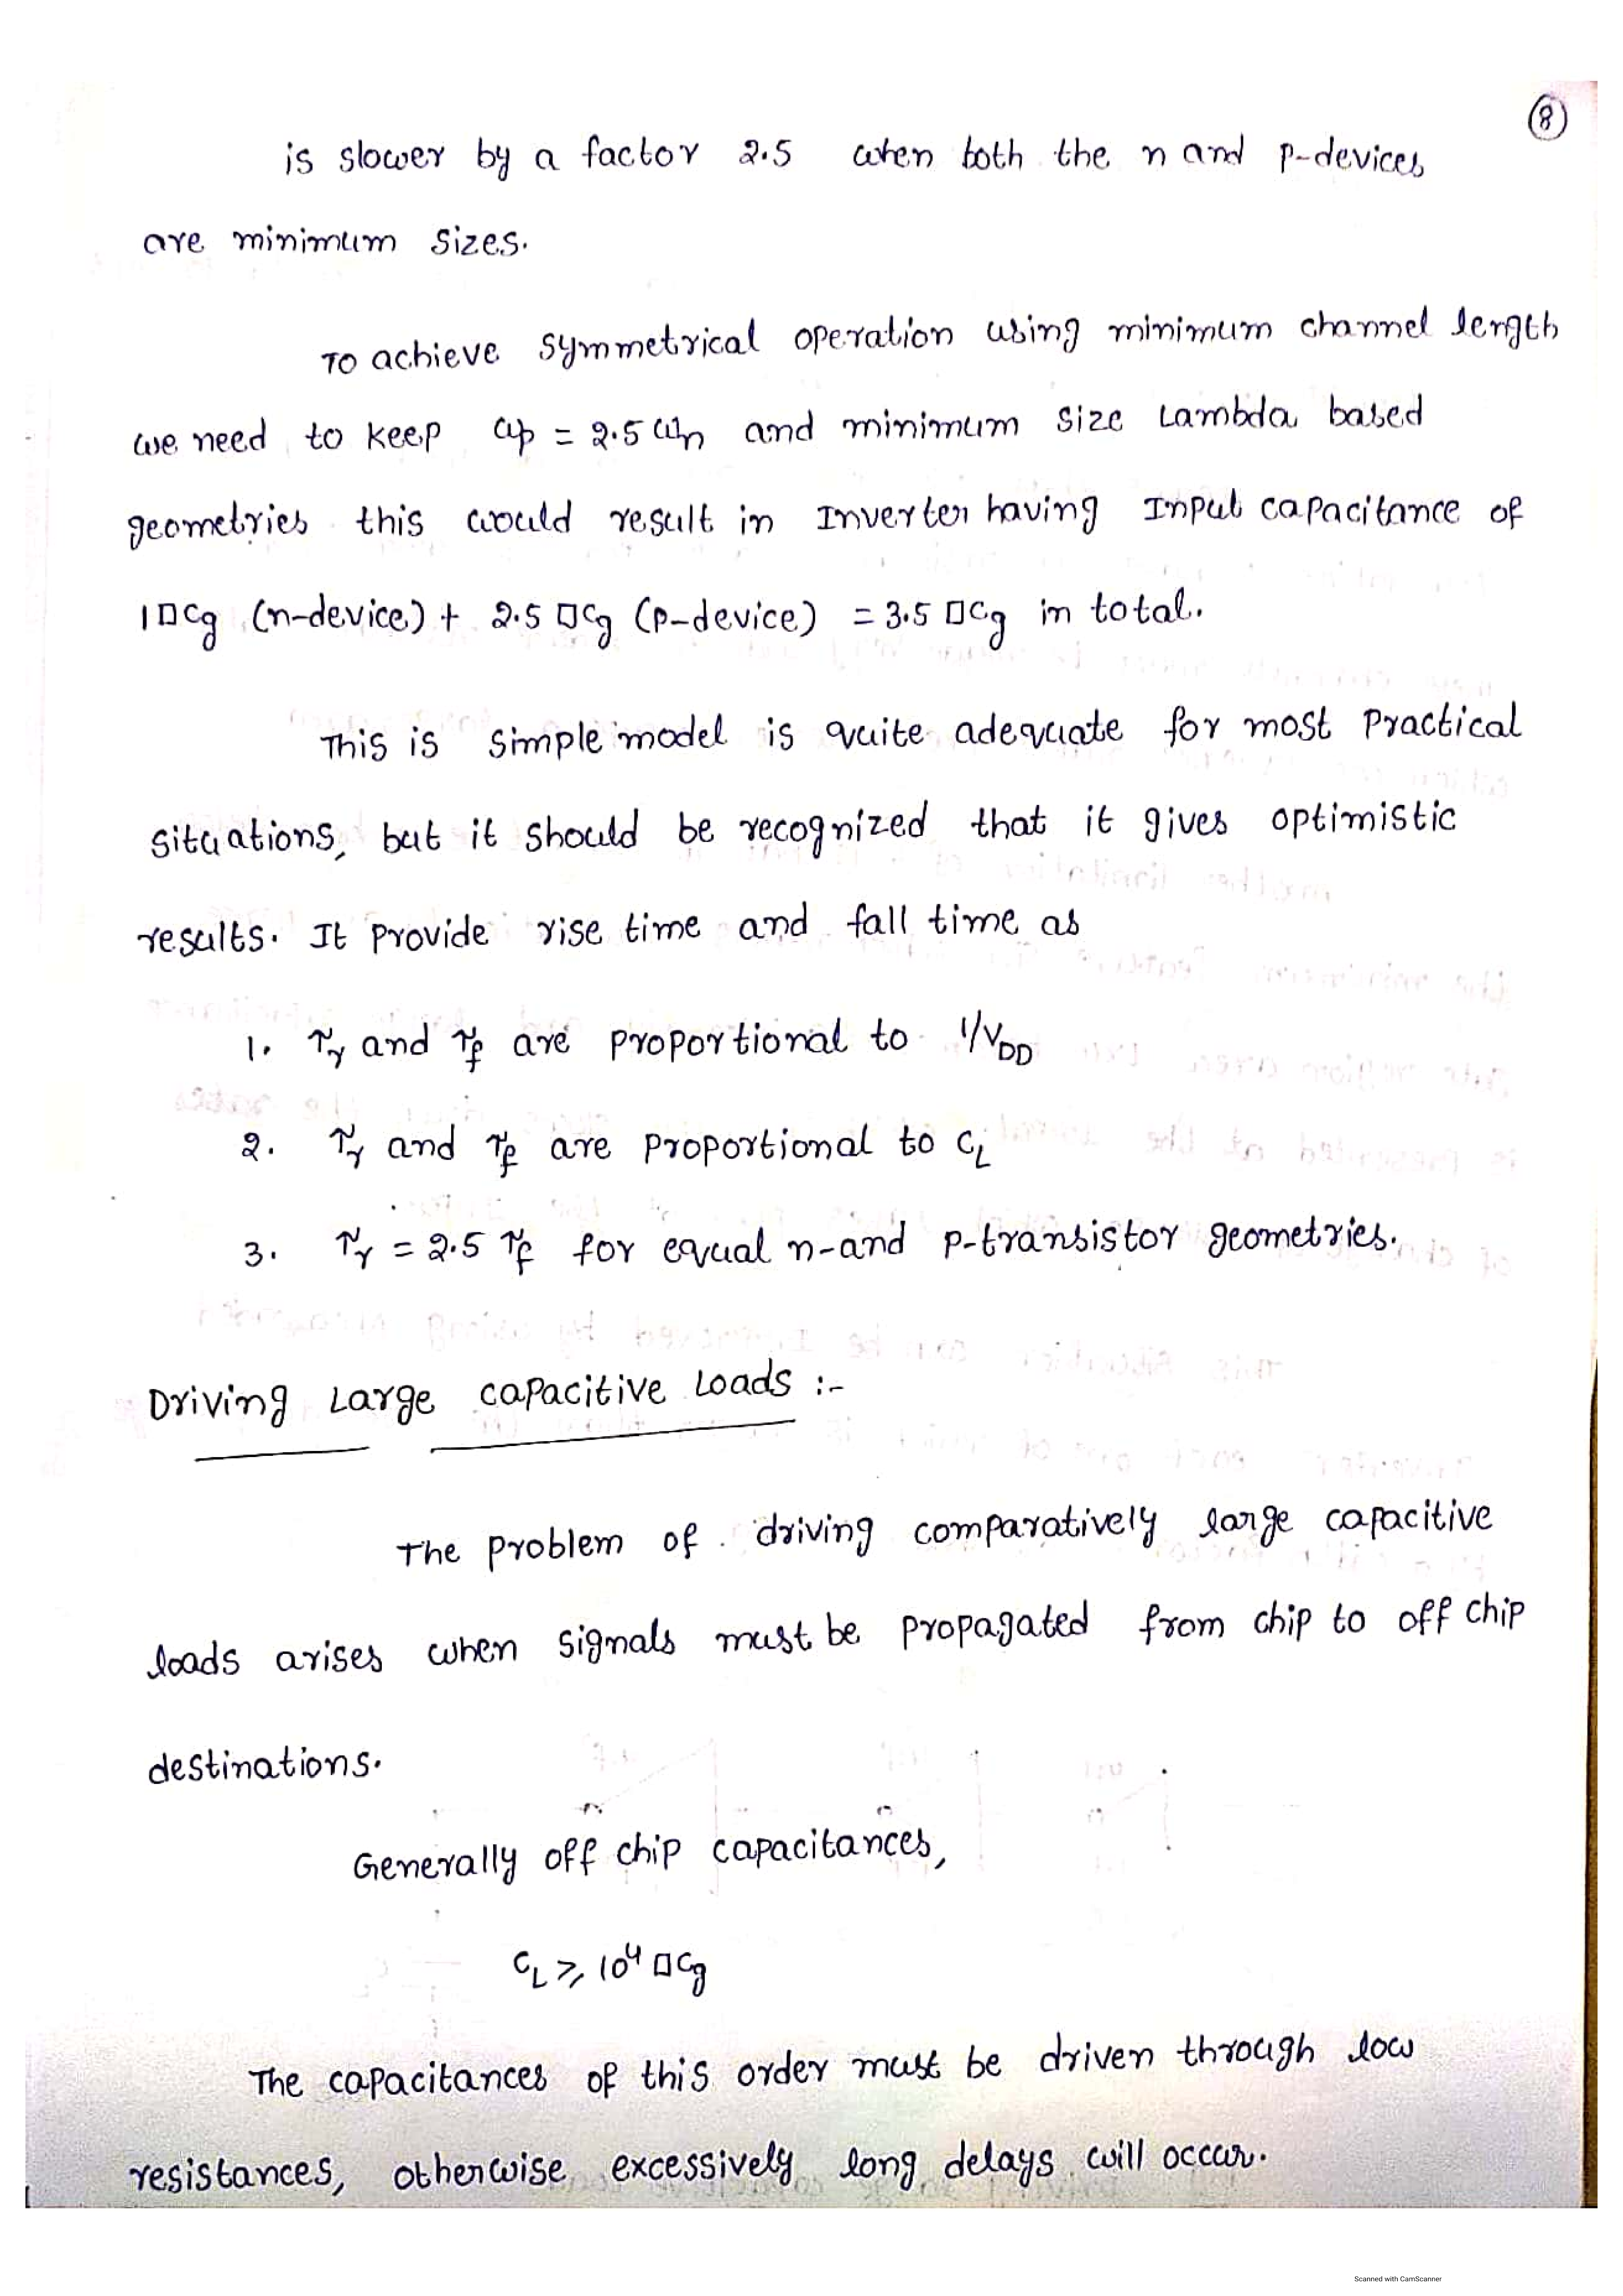 8
is slower by a factor 2.5 when both the n and p-devices
are minimum sizes.
To achieve symmetrical operation using minimum channel length
we need to keep Wp = 2.5 Wn and minimum size Lambda based
geometries this would result in Inverter having Input capacitance of
1□Cg (n-device) + 2.5 □Cg (p-device) = 3.5 □Cg in total.
This is simple model is quite adequate for most Practical
situations, but it should be recognized that it gives optimistic
results. It Provide rise time and fall time as
1. τr and τf are proportional to 1/VDD
2. τr and τf are proportional to CL
3. τr = 2.5 τf for equal n-and p-transistor geometries.
Driving Large capacitive Loads :-
The problem of driving comparatively large capacitive
loads arises when signals must be propagated from chip to off chip
destinations.
Generally off chip capacitances,
CL ⩾ 10⁴ □Cg
The capacitances of this order must be driven through low
resistances, otherwise excessively long delays will occur.
Scanned with CamScanner